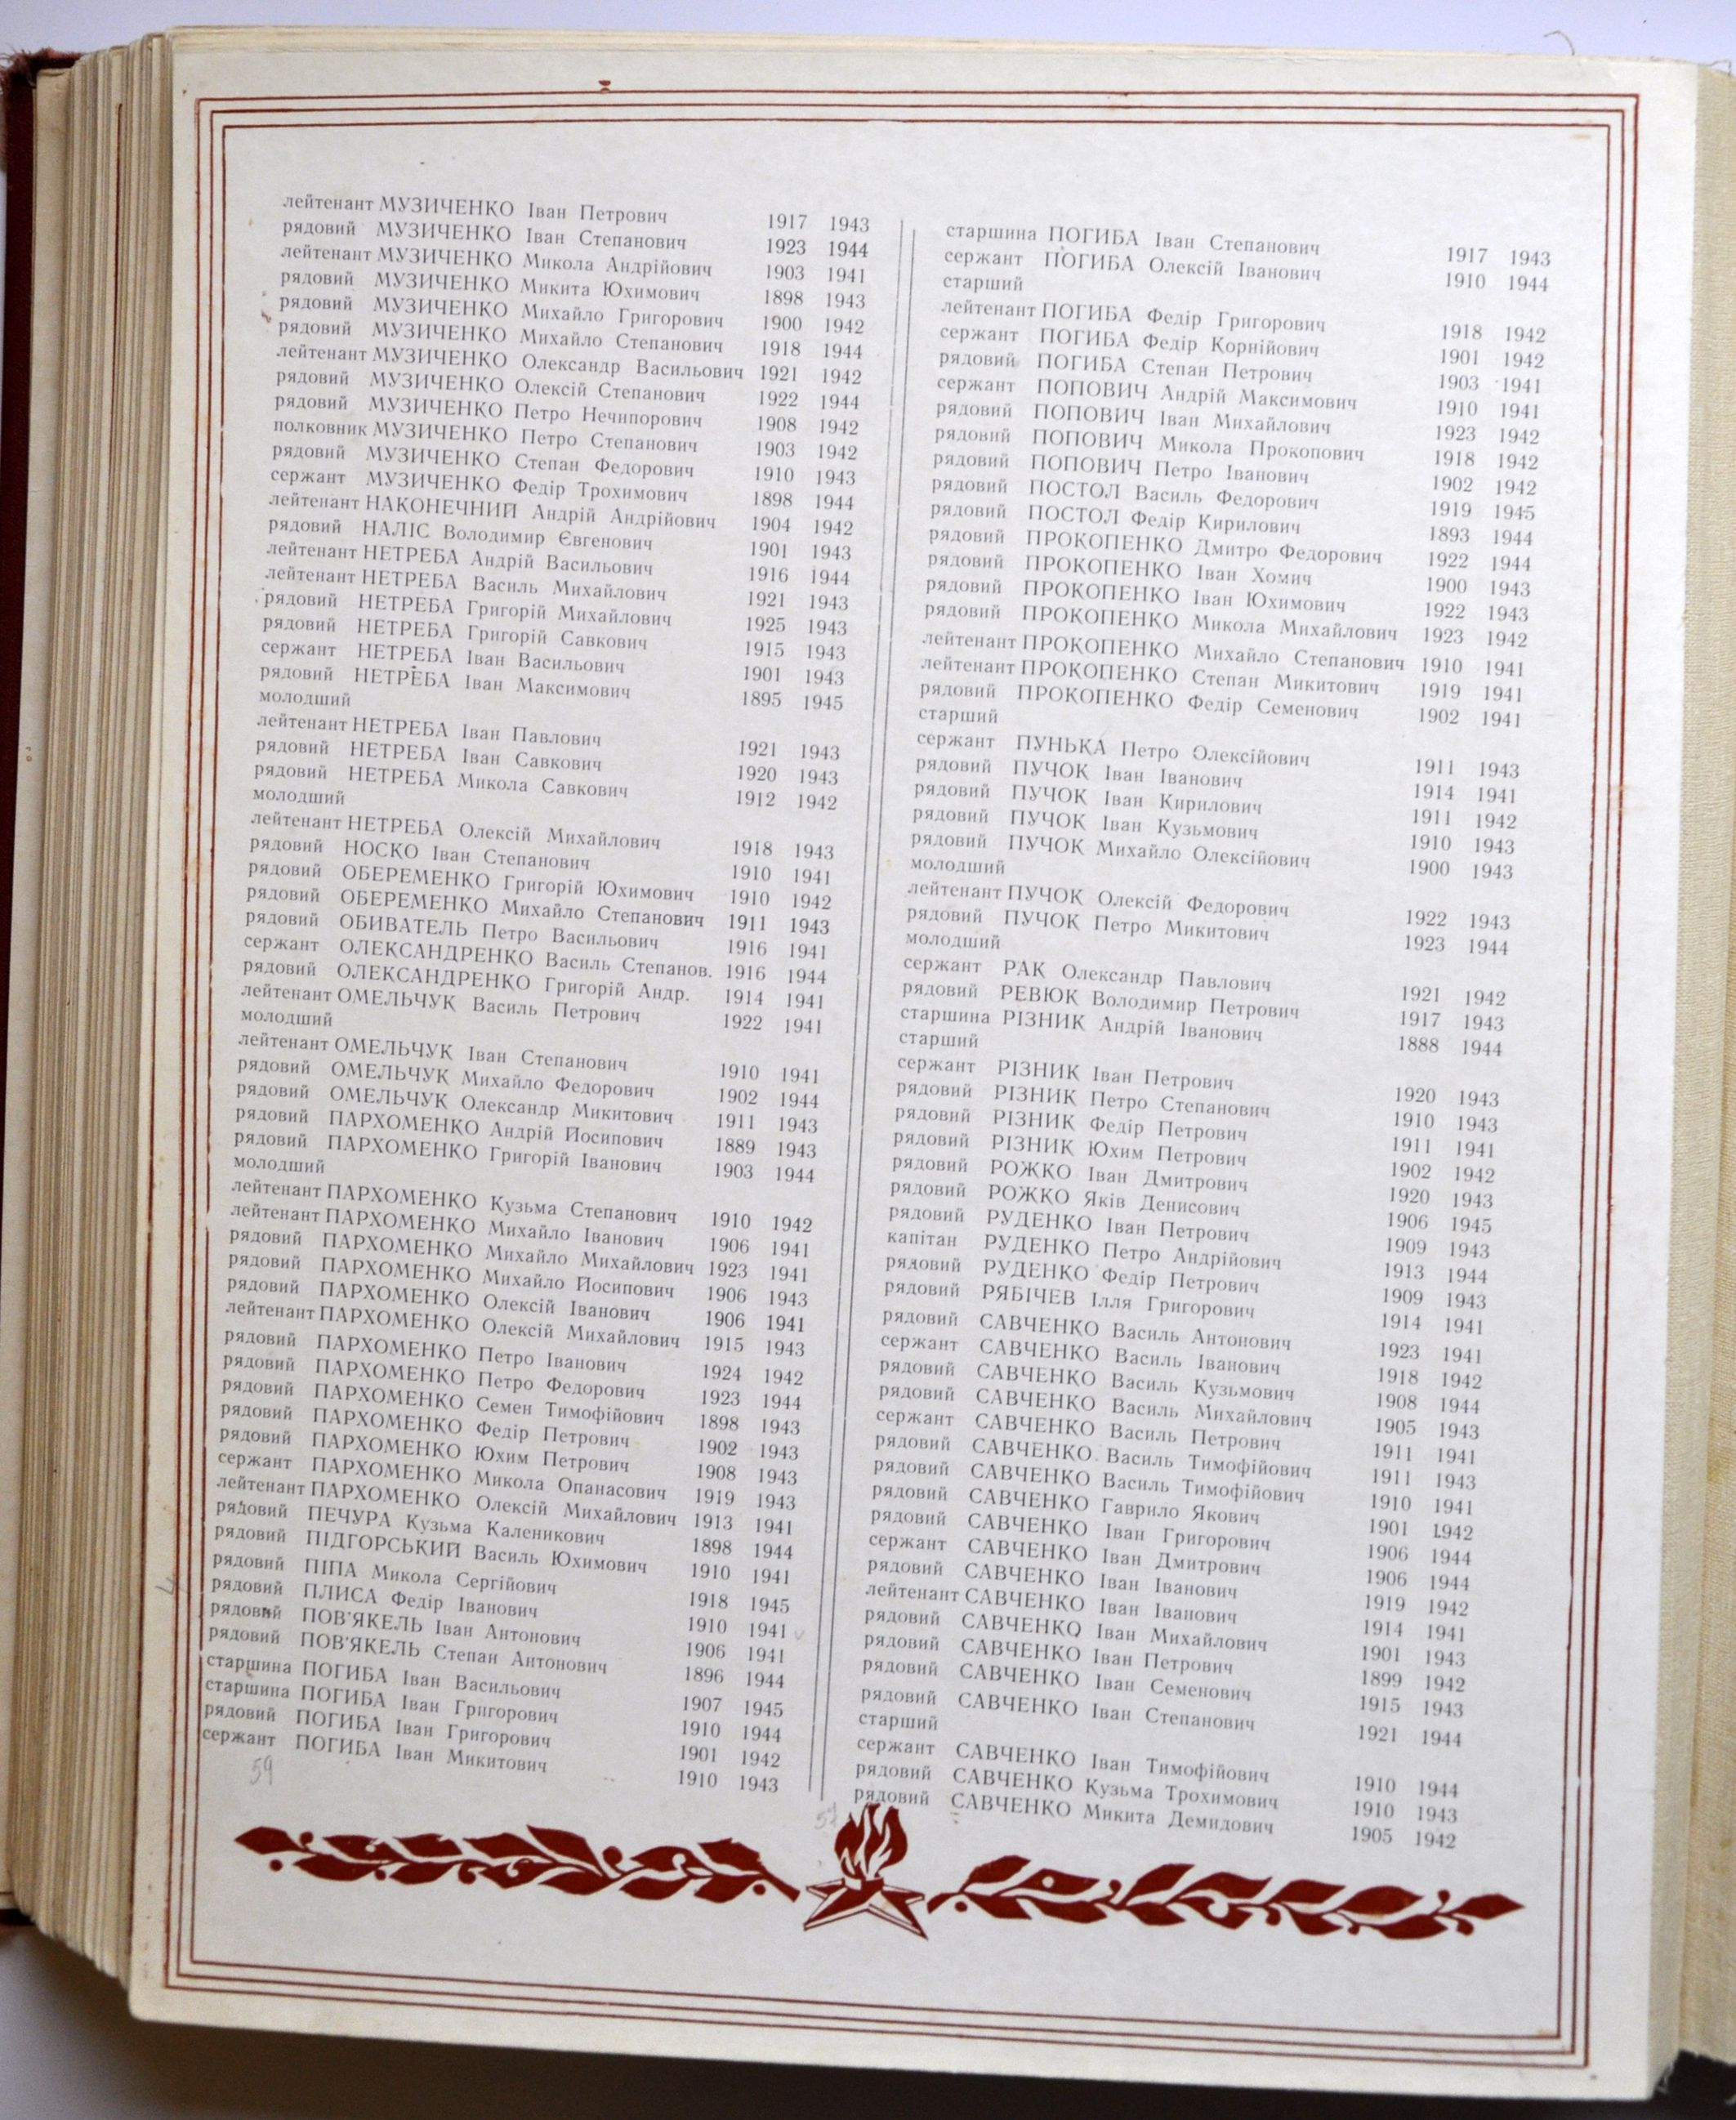 лейтенант МУЗИЧЕНКО Іван Петрович 1917 1943
рядовий МУЗИЧЕНКО Іван Степанович 1923 1944
лейтенант МУЗИЧЕНКО Микола Андрійович 1903 1941
рядовий МУЗИЧЕНКО Микита Юхимович 1898 1943
рядовий МУЗИЧЕНКО Михайло Григорович 1900 1942
рядовий МУЗИЧЕНКО Михайло Степанович 1918 1944
лейтенант МУЗИЧЕНКО Олександр Васильович 1921 1942
рядовий МУЗИЧЕНКО Олексій Степанович 1922 1944
рядовий МУЗИЧЕНКО Петро Нечипорович 1908 1942
полковник МУЗИЧЕНКО Петро Степанович 1903 1942
рядовий МУЗИЧЕНКО Степан Федорович 1910 1943
сержант МУЗИЧЕНКО Федір Трохимович 1898 1944
лейтенант НАКОНЕЧНИЙ Андрій Андрійович 1904 1942
рядовий НАЛІС Володимир Євгенович 1901 1943
лейтенант НЕТРЕБА Андрій Васильович 1916 1944
лейтенант НЕТРЕБА Василь Михайлович 1921 1943
рядовий НЕТРЕБА Григорій Михайлович 1925 1943
рядовий НЕТРЕБА Григорій Савкович 1915 1943
сержант НЕТРЕБА Іван Васильович 1901 1943
рядовий НЕТРЕБА Іван Максимович 1895 1945
молодший
лейтенант НЕТРЕБА Іван Павлович 1921 1943
рядовий НЕТРЕБА Іван Савкович 1920 1943
рядовий НЕТРЕБА Микола Савкович 1912 1942
молодший
лейтенант НЕТРЕБА Олексій Михайлович 1918 1943
рядовий НОСКО Іван Степанович 1910 1941
рядовий ОБЕРЕМЕНКО Григорій Юхимович 1910 1942
рядовий ОБЕРЕМЕНКО Михайло Степанович 1911 1943
рядовий ОБИВАТЕЛЬ Петро Васильович 1916 1941
сержант ОЛЕКСАНДРЕНКО Василь Степанов. 1916 1944
рядовий ОЛЕКСАНДРЕНКО Григорій Андр. 1914 1941
лейтенант ОМЕЛЬЧУК Василь Петрович 1922 1941
молодший
лейтенант ОМЕЛЬЧУК Іван Степанович 1910 1941
рядовий ОМЕЛЬЧУК Михайло Федорович 1902 1944
рядовий ОМЕЛЬЧУК Олександр Микитович 1911 1943
рядовий ПАРХОМЕНКО Андрій Йосипович 1889 1943
рядовий ПАРХОМЕНКО Григорій Іванович 1903 1944
молодший
лейтенант ПАРХОМЕНКО Кузьма Степанович 1910 1942
лейтенант ПАРХОМЕНКО Михайло Іванович 1906 1941
рядовий ПАРХОМЕНКО Михайло Михайлович 1923 1941
рядовий ПАРХОМЕНКО Михайло Йосипович 1906 1943
рядовий ПАРХОМЕНКО Олексій Іванович 1906 1941
лейтенант ПАРХОМЕНКО Олексій Михайлович 1915 1943
рядовий ПАРХОМЕНКО Петро Іванович 1924 1942
рядовий ПАРХОМЕНКО Петро Федорович 1923 1944
рядовий ПАРХОМЕНКО Семен Тимофійович 1898 1943
рядовий ПАРХОМЕНКО Федір Петрович 1902 1943
рядовий ПАРХОМЕНКО Юхим Петрович 1908 1943
сержант ПАРХОМЕНКО Микола Опанасович 1919 1943
лейтенант ПАРХОМЕНКО Олексій Михайлович 1913 1941
рядовий ПЕЧУРА Кузьма Каленикович 1898 1944
рядовий ПІДГОРСЬКИЙ Василь Юхимович 1910 1941
рядовий ПІПА Микола Сергійович 1918 1945
рядовий ПЛИСА Федір Іванович 1910 1941
рядовий ПОВ'ЯКЕЛЬ Іван Антонович 1906 1941
рядовий ПОВ'ЯКЕЛЬ Степан Антонович 1896 1944
старшина ПОГИБА Іван Васильович 1907 1945
старшина ПОГИБА Іван Григорович 1910 1944
рядовий ПОГИБА Іван Григорович 1901 1942
сержант ПОГИБА Іван Микитович 1910 1943
59
старшина ПОГИБА Іван Степанович 1917 1943
сержант ПОГИБА Олексій Іванович 1910 1944
старший
лейтенант ПОГИБА Федір Григорович 1918 1942
сержант ПОГИБА Федір Корнійович 1901 1942
рядовий ПОГИБА Степан Петрович 1903 1941
сержант ПОПОВИЧ Андрій Максимович 1910 1941
рядовий ПОПОВИЧ Іван Михайлович 1923 1942
рядовий ПОПОВИЧ Микола Прокопович 1918 1942
рядовий ПОПОВИЧ Петро Іванович 1902 1942
рядовий ПОСТОЛ Василь Федорович 1919 1945
рядовий ПОСТОЛ Федір Кирилович 1893 1944
рядовий ПРОКОПЕНКО Дмитро Федорович 1922 1944
рядовий ПРОКОПЕНКО Іван Хомич 1900 1943
рядовий ПРОКОПЕНКО Іван Юхимович 1922 1943
рядовий ПРОКОПЕНКО Микола Михайлович 1923 1942
лейтенант ПРОКОПЕНКО Михайло Степанович 1910 1941
лейтенант ПРОКОПЕНКО Степан Микитович 1919 1941
рядовий ПРОКОПЕНКО Федір Семенович 1902 1941
старший
сержант ПУНЬКА Петро Олексійович 1911 1943
рядовий ПУЧОК Іван Іванович 1914 1941
рядовий ПУЧОК Іван Кирилович 1911 1942
рядовий ПУЧОК Іван Кузьмович 1910 1943
рядовий ПУЧОК Михайло Олексійович 1900 1943
молодший
лейтенант ПУЧОК Олексій Федорович 1922 1943
рядовий ПУЧОК Петро Микитович 1923 1944
молодший
сержант РАК Олександр Павлович 1921 1942
рядовий РЕВЮК Володимир Петрович 1917 1943
старшина РІЗНИК Андрій Іванович 1888 1944
старший
сержант РІЗНИК Іван Петрович 1920 1943
рядовий РІЗНИК Петро Степанович 1910 1943
рядовий РІЗНИК Федір Петрович 1911 1941
рядовий РІЗНИК Юхим Петрович 1902 1942
рядовий РОЖКО Іван Дмитрович 1920 1943
рядовий РОЖКО Яків Денисович 1906 1945
рядовий РУДЕНКО Іван Петрович 1909 1943
капітан РУДЕНКО Петро Андрійович 1913 1944
рядовий РУДЕНКО Федір Петрович 1909 1943
рядовий РЯБІЧЕВ Ілля Григорович 1914 1941
рядовий САВЧЕНКО Василь Антонович 1923 1941
сержант САВЧЕНКО Василь Іванович 1918 1942
рядовий САВЧЕНКО Василь Кузьмович 1908 1944
рядовий САВЧЕНКО Василь Михайлович 1905 1943
сержант САВЧЕНКО Василь Петрович 1911 1941
рядовий САВЧЕНКО Василь Тимофійович 1911 1943
рядовий САВЧЕНКО Василь Тимофійович 1910 1941
рядовий САВЧЕНКО Гаврило Якович 1901 1942
рядовий САВЧЕНКО Іван Григорович 1906 1944
сержант САВЧЕНКО Іван Дмитрович 1906 1944
рядовий САВЧЕНКО Іван Іванович 1919 1942
лейтенант САВЧЕНКО Іван Іванович 1914 1941
рядовий САВЧЕНКО Іван Михайлович 1901 1943
рядовий САВЧЕНКО Іван Петрович 1899 1942
рядовий САВЧЕНКО Іван Семенович 1915 1943
рядовий САВЧЕНКО Іван Степанович 1921 1944
старший
сержант САВЧЕНКО Іван Тимофійович 1910 1944
рядовий САВЧЕНКО Кузьма Трохимович 1910 1943
рядовий САВЧЕНКО Микита Демидович 1905 1942